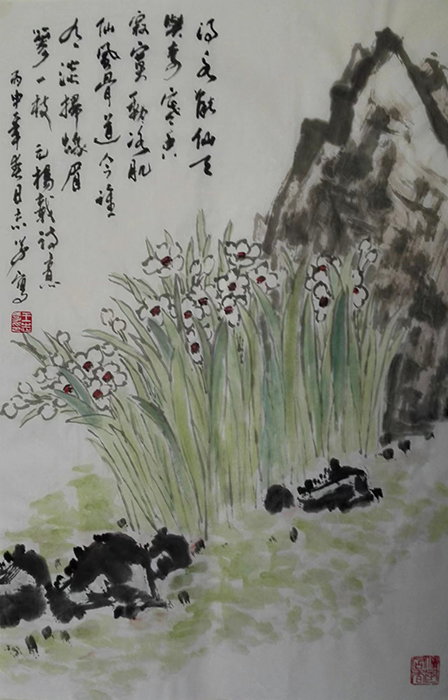 得水能仙天
與奇寒香
寂寞動冰肌
仙風骨道今誰
有淡掃蛾眉
簪一枝 元楊戴詩意
丙申年春月志学寫